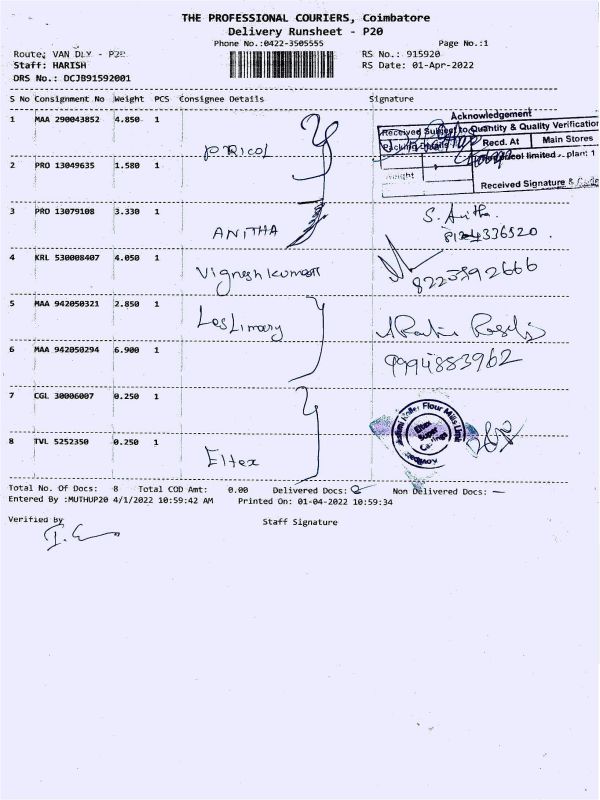 THE PROFESSIONAL COURIERS, Coimbatore
Delivery Runsheet - P20
Phone No.:0422-3505555 Page No.:1
Route: VAN DLY - P20 RS No.: 915920
Staff: HARISH RS Date: 01-Apr-2022
DRS No.: DCJB91592001
S No Consignment No Weight PCS Consignee Details Signature
Acknowledgement
Received Subject to Quantity & Quality Verification
Recd. At Main Stores
limited - plant 1
Weight
Received Signature &
1 MAA 290043852 4.850 1
PRICOL
2 PRO 13049635 1.580 1
3 PRO 13079108 3.330 1 S. Anitha
ANITHA 8124336520.
4 KRL 530008407 4.050 1
Vignesh kumar 8223592666
5 MAA 942050321 2.850 1
6 MAA 942050294 6.900 1 9994883962
7 CGL 30006007 0.250 1
Flour Mills Limited
Eltex Super Castings
8 TVL 5252350 0.250 1
Eltex
Total No. Of Docs: 8 Total COD Amt: 0.00 Delivered Docs: 8 Non Delivered Docs: —
Entered By :MUTHUP20 4/1/2022 10:59:42 AM Printed On: 01-04-2022 10:59:34
Verified by Staff Signature